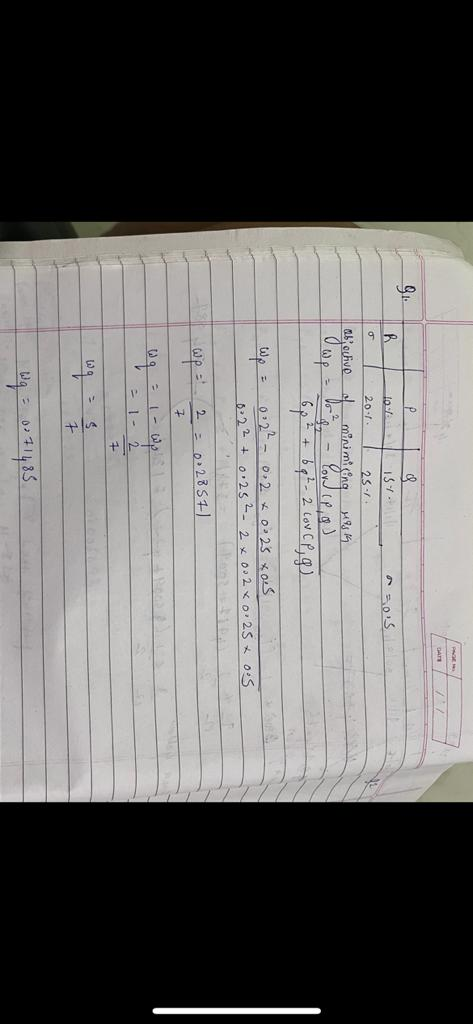 PAGE NO.
DATE
Q1.
P Q
R 10% 15% σ = 0.5
σ 20% 25%
objective of minimizing risk
wp = σq² - cov(P,Q)
6p² + 6q² - 2 cov(P,Q)
wp = 0.2² - 0.2 x 0.25 x 0.5
0.2² + 0.25² - 2 x 0.2 x 0.25 x 0.5
wp = 2 = 0.28571
7
wq = 1 - wp
= 1 - 2
7
wq = 5
7
wq = 0.71485